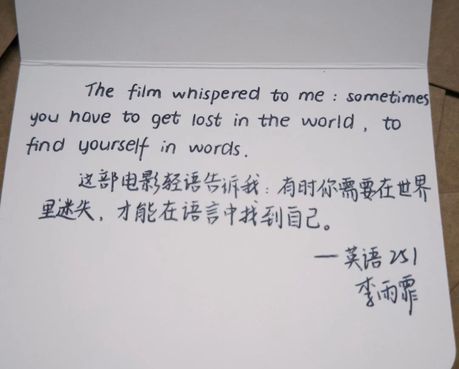 The film whispered to me : sometimes
you have to get lost in the world , to
find yourself in words .
这部电影轻语告诉我：有时你需要在世界
里迷失，才能在语言中找到自己。
— 英语 251
李雨霏